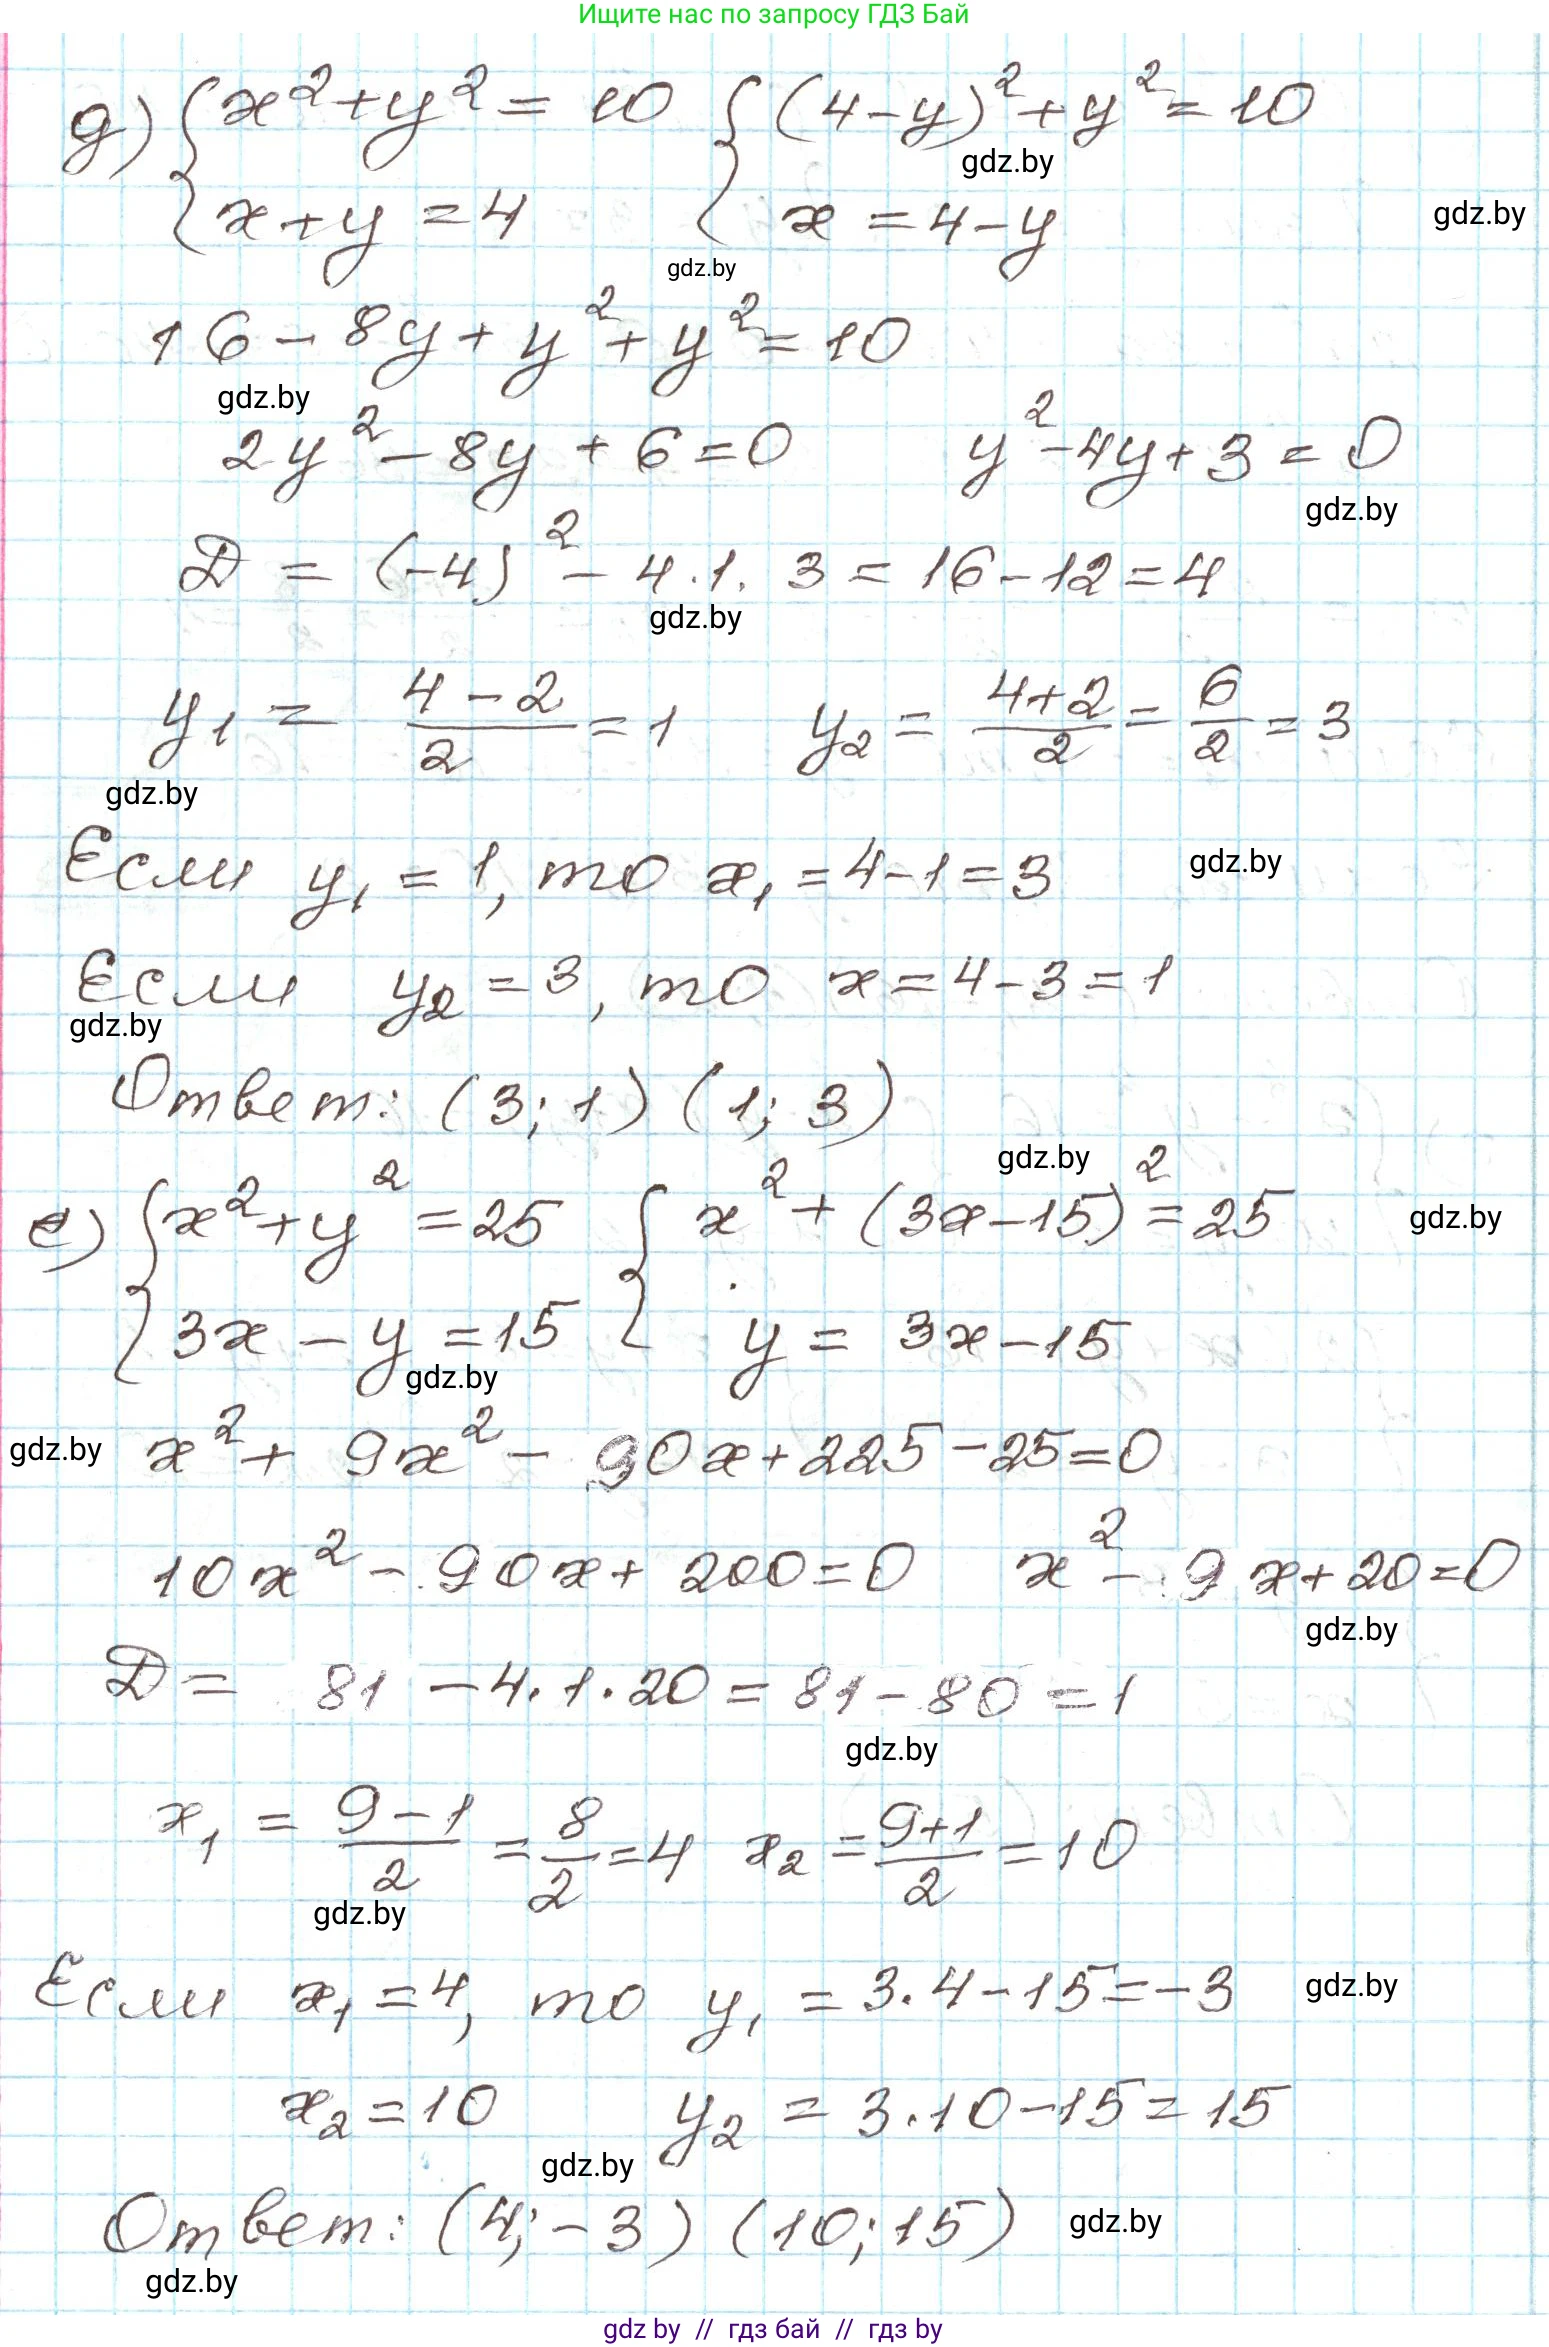 Ищите нас по запросу ГДЗ Бай
д) { x² + y² = 10 { (4 - y)² + y² = 10
gdz.by
x + y = 4 x = 4 - y
gdz.by
gdz.by
16 - 8y + y² + y² = 10
gdz.by
2y² - 8y + 6 = 0 y² - 4y + 3 = 0
gdz.by
D = (-4)² - 4 · 1 · 3 = 16 - 12 = 4
gdz.by
y₁ = (4 - 2)/2 = 1 y₂ = (4 + 2)/2 = 6/2 = 3
gdz.by
Если y₁ = 1, то x₁ = 4 - 1 = 3 gdz.by
Если y₂ = 3, то x = 4 - 3 = 1
gdz.by
Ответ: (3; 1) (1; 3)
gdz.by
е) { x² + y² = 25 { x² + (3x - 15)² = 25 gdz.by
3x - y = 15 y = 3x - 15
gdz.by
gdz.by x² + 9x² - 90x + 225 - 25 = 0
10x² - 90x + 200 = 0 x² - 9x + 20 = 0
gdz.by
D = 81 - 4 · 1 · 20 = 81 - 80 = 1
gdz.by
x₁ = (9 - 1)/2 = 8/2 = 4 x₂ = (9 + 1)/2 = 10
gdz.by
Если x₁ = 4, то y₁ = 3 · 4 - 15 = -3 gdz.by
x₂ = 10 y₂ = 3 · 10 - 15 = 15
gdz.by
Ответ: (4; -3) (10; 15) gdz.by
gdz.by
gdz by // гдз бай // гдз by